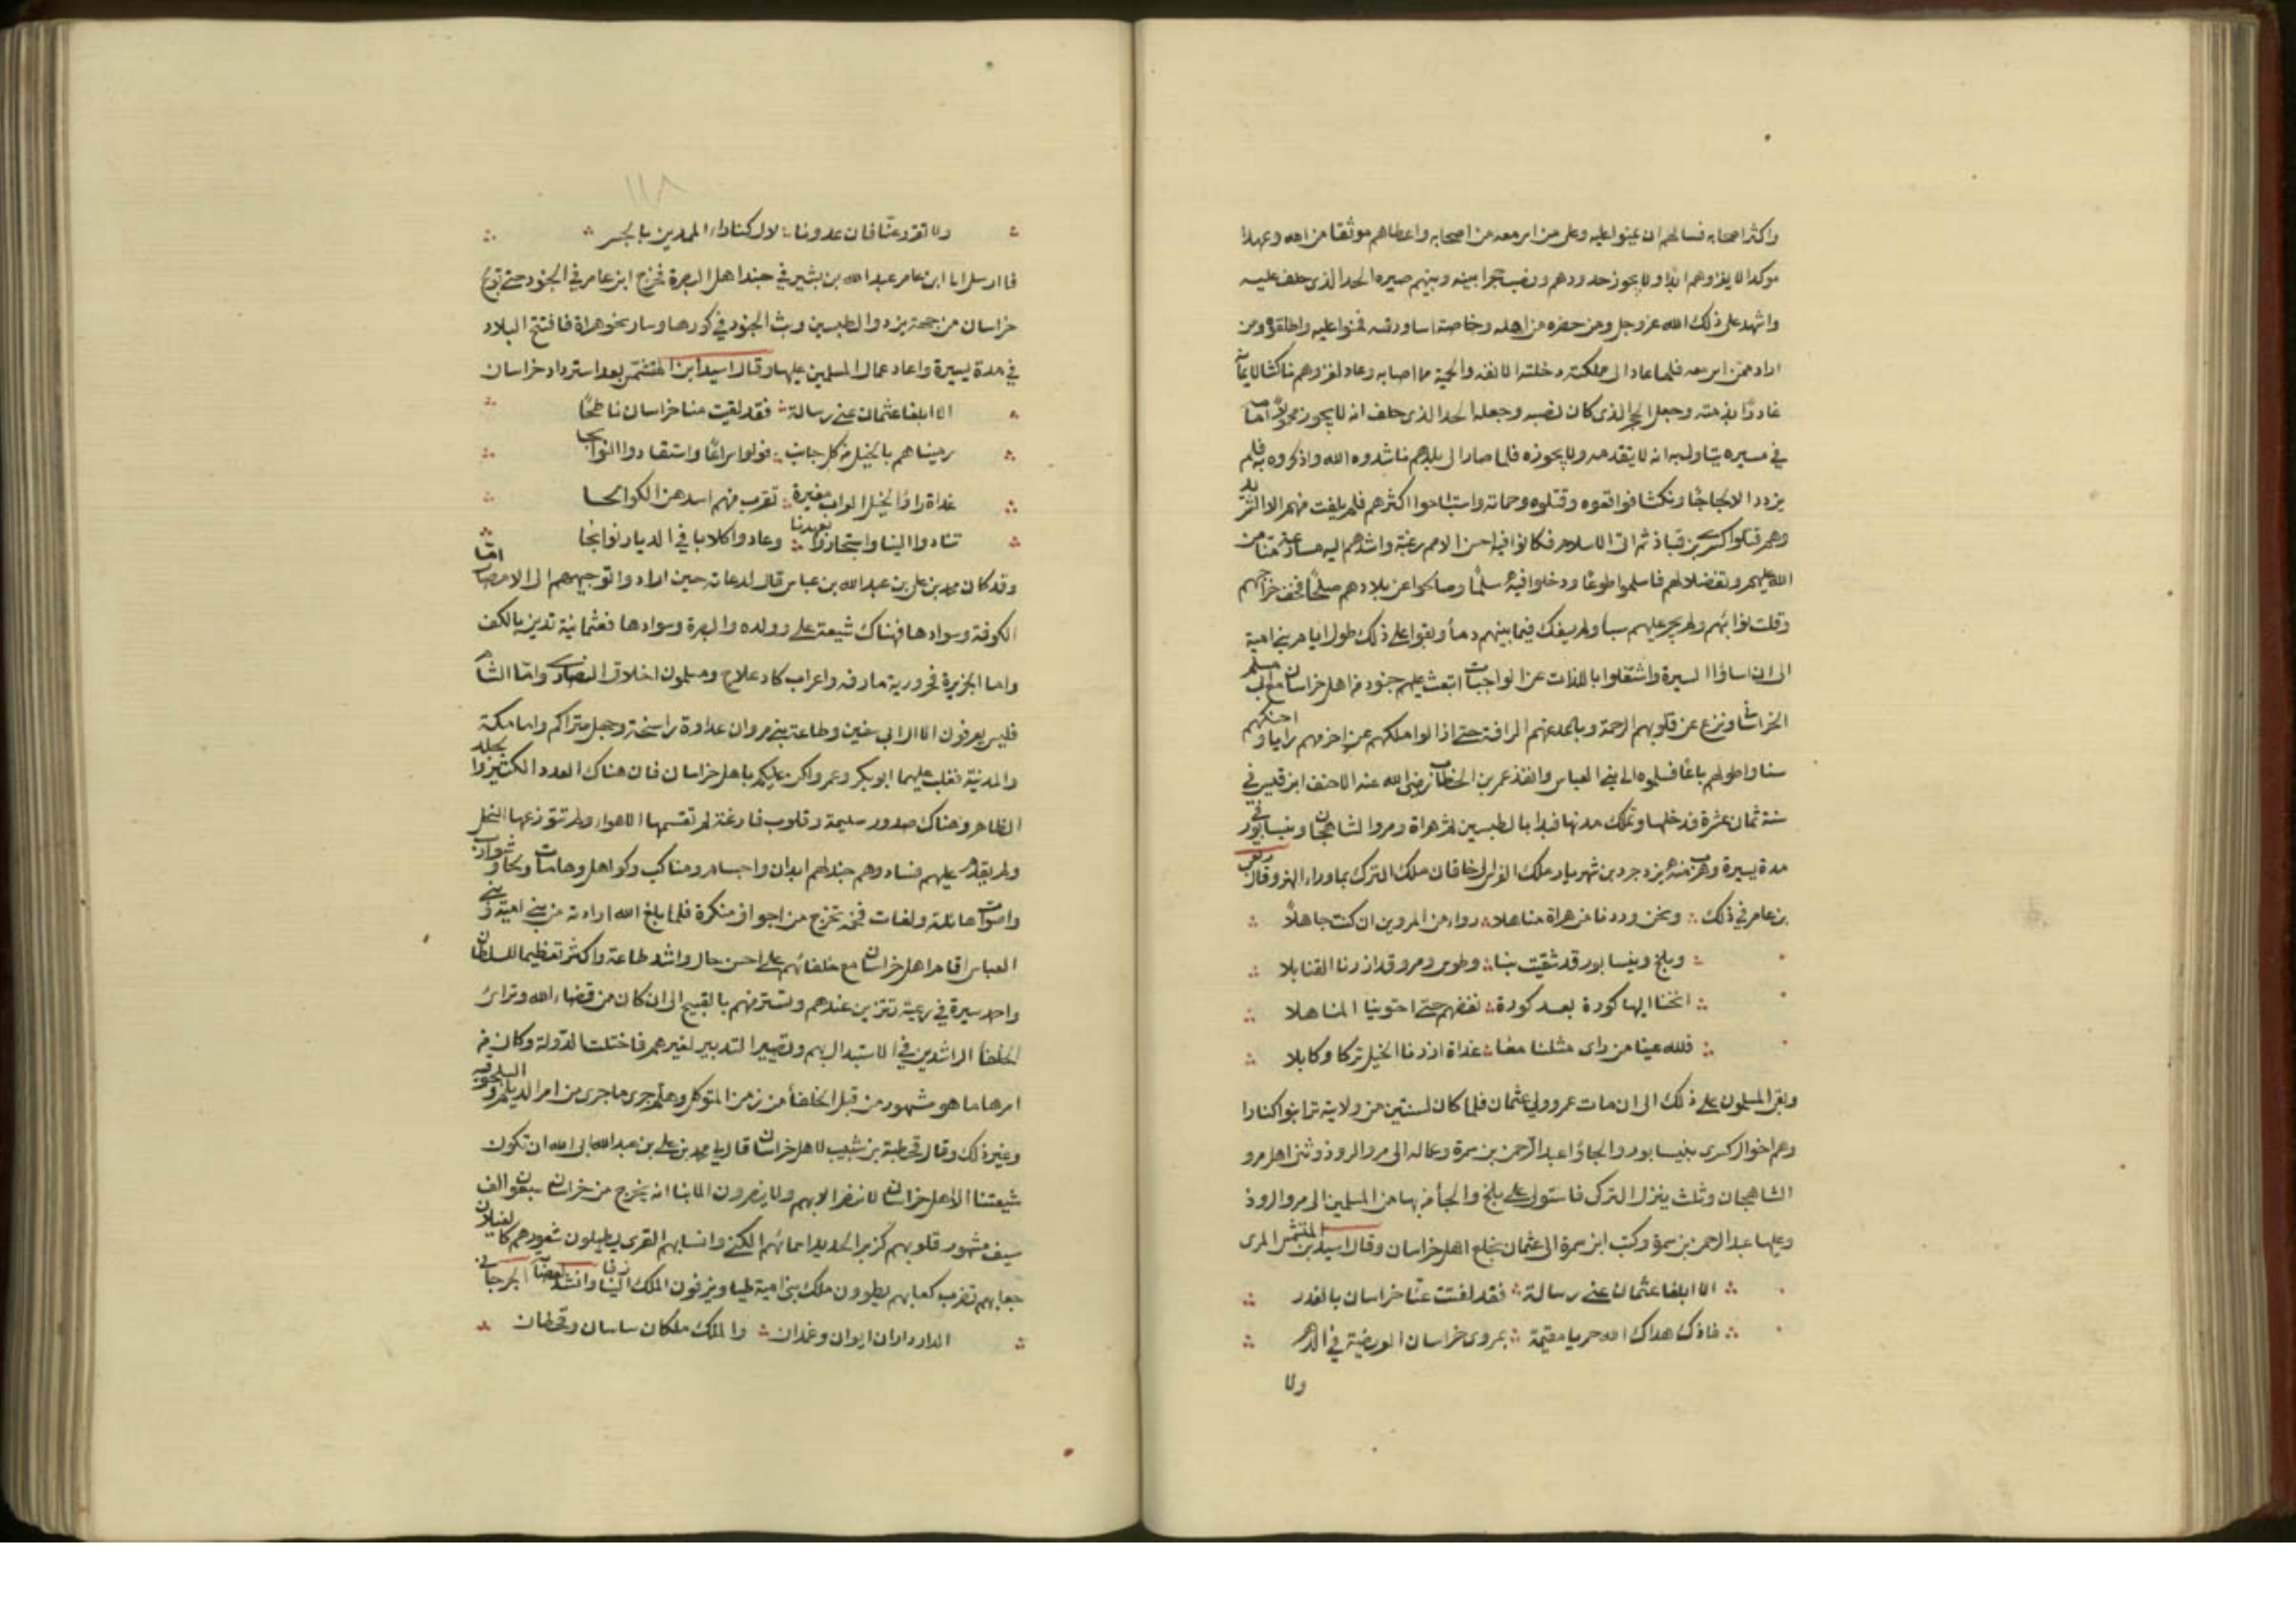 واكثر اصحابه فسالهم ان يمنوا عليه وعلى من اسر معه من اصحابه واعطاهم موثقا من الله وعهدا
موكدا لا يغزوهم ابدا ولا يجوز حدودهم ونصب حجرا بينه وبينهم صيره الحد الذي حلف عليه
واشهد على ذلك الله عز وجل ومن حضره من اهله وخاصة اساورته فمنوا عليه واطلقوه ومن
اراد ممن اسر معه فلما عاد الى مملكته دخلته الانفه والحمية مما اصابه وعاد لغزوهم ناكثا لايمانه
غادرا بذمته وجعل الحجر الذي كان نصبه وجعله الحد الذي حلف انه لا يجوزه محمولا امامه
في مسيره يتاول به انه لا يتقدمه ولا يجوزه فلما صار الى بلدهم ناشدوه الله واذكروه به فلم
يزدد الا لجاجا ونكثا فواقعوه وقتلوه وحماته واستباحوا اكثرهم فلم يفلت منهم الا الشريد
وهم قتلوا كسرى بن قباذ ثم اتى الاسلام فكانوا فيه احسن الامم رغبة واشدهم اليه مسارعة منا من
الله عليهم وتفضلا لهم فاسلموا طوعا ودخلوا فيه سلما وصالحوا عن بلادهم صلحا فخف خراجهم
وقلت نوائبهم ولم يجر عليهم سبا ولم يسفك فيما بينهم دما وبقوا على ذلك طول ايام بني امية
الى ان اساؤا السيرة واشتغلوا باللذات عن الواجبات ابتعث عليهم جنود من اهل خراسان مع ابي مسلم
الخراساني ونزع عن قلوبهم الرحمة وباعد عنهم الرافة حتى ازالوا ملكهم عن اخرهم رايا واحنكهم
سنا واطولهم باعا فسلموه الى بني العباس وانفذ عمر بن الخطاب رضى الله عنه الاحنف ابن قيس في
سنة ثمان عشرة فدخلها وتملك مدنها فبدا بالطبسين ثم هراة ومرو الشاهجان ونيسابور في
مدة يسيرة وهرب منه يزدجرد بن شهريار ملك الفرس الى خاقان ملك الترك بما وراء النهر وقال ربعي
بن عامر في ذلك ونحن وردنا من هراة مناهلا رواء من المروين ان كنت جاهلا
وبلخ ونيسابور قد شقيت بنا وطوس ومرو قد ازرنا القنابلا
انخنا اليها كورة بعد كورة نفضهم حتى احتوينا المناهلا
فلله عينا من راى مثلنا معا غداة ازرنا الخيل تركا وكابلا
وبقى المسلمون على ذلك الى ان مات عمر وولي عثمان فلما كان لسنتين من ولايته ترا بنوا كنازا
وهم اخوال كسرى بنيسابور والجاؤا عبد الرحمن بن سمرة وعماله الى مرو الروذ وثنى اهل مرو
الشاهجان وثلث ينزل الترك فاستولى على بلخ والجأ من بها من المسلمين الى مرو الروذ
وعليها عبد الرحمن بن سمرة وكتب ابن سمرة الى عثمان بخلع اهل خراسان وقال اسيد بن المتشمس المرى
الا ابلغا عثمان عني رسالة فقد لقيت عنا خراسان بالغدر
فاذك هداك الله حربا مقيمة بمروى خراسان العريضة في الدهر
ولا
١١٨
ولا تغترر عنا فان عدونا لال كنازاء الممدين بالجسر
فارسل ابا ابن عامر عبد الله بن بشير في جند اهل البصرة فخرج ابن عامر في الجنود حتى تولج
خراسان من جهة يزد والطبسين وبث الجنود في كورها وسار نحو هراة فافتتح البلاد
في مدة يسيرة واعاد عمال المسلمين عليها وقال اسيد ابن المتشمس بعد استرداد خراسان
الا ابلغا عثمان عني رسالة فقد لقيت منا خراسان ناطحا
رميناهم بالخيل من كل جانب فولوا سراعا واستقادوا النوابحا
غداة راوا الخيل العراب مغيرة تقرب منهم اسدهن الكوالحا
تنادوا الينا واستجاروا بعهدنا وعادوا كلابا في الديار نوابحا
وقد كان محمد بن علي بن عبد الله بن عباس قال لدعاته حين اراد والتوجيههم الى الامصار اما
الكوفة وسوادها فهناك شيعة على وولده والبصرة وسوادها فعثمانية تدين بالكف
واما الجزيرة فحرورية مارقه واعراب كاعلاج ومسلمون اخلاق النصارى واما الشام
فليس يعرفون الا ال ابي سفين وطاعة بني مروان عداوة راسخة وجهل متراكم واما مكة
والمدينة فغلب عليهما ابو بكر وعمر ولكن عليكم باهل خراسان فان هناك العدد الكثير والجلد
الظاهر وهناك صدور سليمة وقلوب فارغة لم تقسمها الاهواء ولم تتوزعها النحل
ولم يقدم عليهم فساد وهم جند لهم ابدان واجسام ومناكب وكواهل وهامات ولحا وشوارب
واصوات هائلة ولغات فخمة تخرج من اجواف منكرة فلما بلغ الله ارادته من بني امية وبني
العباس اقام اهل خراسان مع خلفائهم على احسن حال واشد طاعة واكثر تعظيما للسلطان
واحمد سيرة في رعيته تتزين عندهم وتستتر منهم بالقبيح الى ان كان من قضاء الله وراى
الخلفأ الراشدين في الاستبدال بهم وتصيير التدبير لغيرهم فاختلت الدولة وكان من
امرها ما هو مشهور من قبل الخلفأ من زمن المتوكل وهلم جرى ما جرى من امر الديلم والسلجوقيه
وغير ذلك وقال قحطبة بن شبيب لاهل خراسان قال لي محمد بن علي بن عبد الله ابى الله ان تكون
شيعتنا الا اهل خراسان لا ننصر الا بهم ولا ينصرون الا بنا انه يخرج من خراسان سبعون الف
سيف مشهور قلوبهم كزبر الحديد اسمائهم الكنى وانسابهم القرى يطيلون شعورهم كالغيلان
جعابهم تضرب كعابهم يطوون ملك بني امية طيا ويزفون الملك الينا زفا وانشد لعصابة الجرجاني
الدار داران ايوان وغمدان والملك ملكان ساسان وقحطان